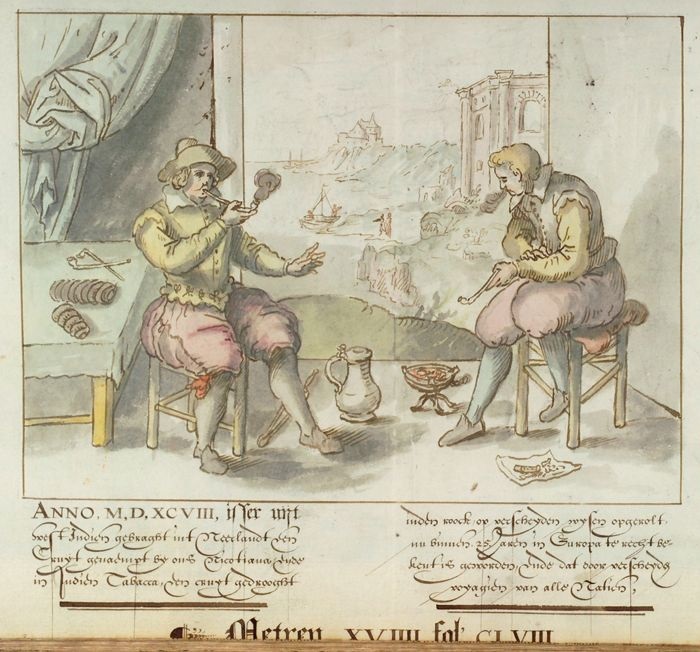 ANNO. M.D.XCVIII, isser uijt
west Indien gebraght int Neerlandt een
Cruijt genaempt by ons Nicotiana, ende
in Indien Tabacca, Den cruijt gedrooght
inden roock op verscheyden wysen opgerolt,
nu binnen 25 Jaren in Europa te recht be-
kent is geworden, Ende dat door verscheyde
voyagien van alle Natien,
Metren XVIIII fol. CLVIII